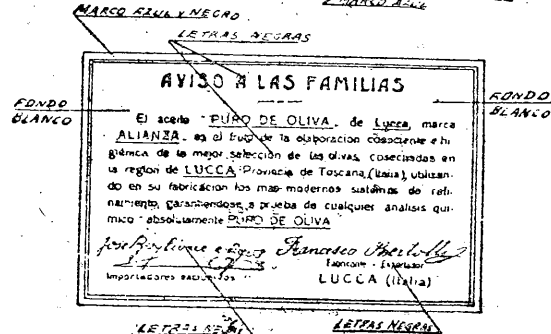 MARCO AZUL Y NEGRO
MARCO AZUL
LETRAS NEGRAS
AVISO A LAS FAMILIAS
FONDO BLANCO
FONDO BLANCO
El aceite "PURO DE OLIVA" de Lucca, marca
ALIANZA, es el fruto de la elaboracion consciente e hi-
giénica de la mejor selección de las olivas, cosechadas en
la región de LUCCA, Provincia de Toscana, (Italia), utilizan-
do en su fabricación los mas modernos sistemas de refi-
namiento, garantiendose a prueba de cualquier analisis qui-
mico absolutamente PURO DE OLIVA
Francesco Bertolli
Fabricante - Exportador
Importadores exclusivos
LUCCA (Italia)
LETRAS NEGRAS
LETRAS NEGRAS